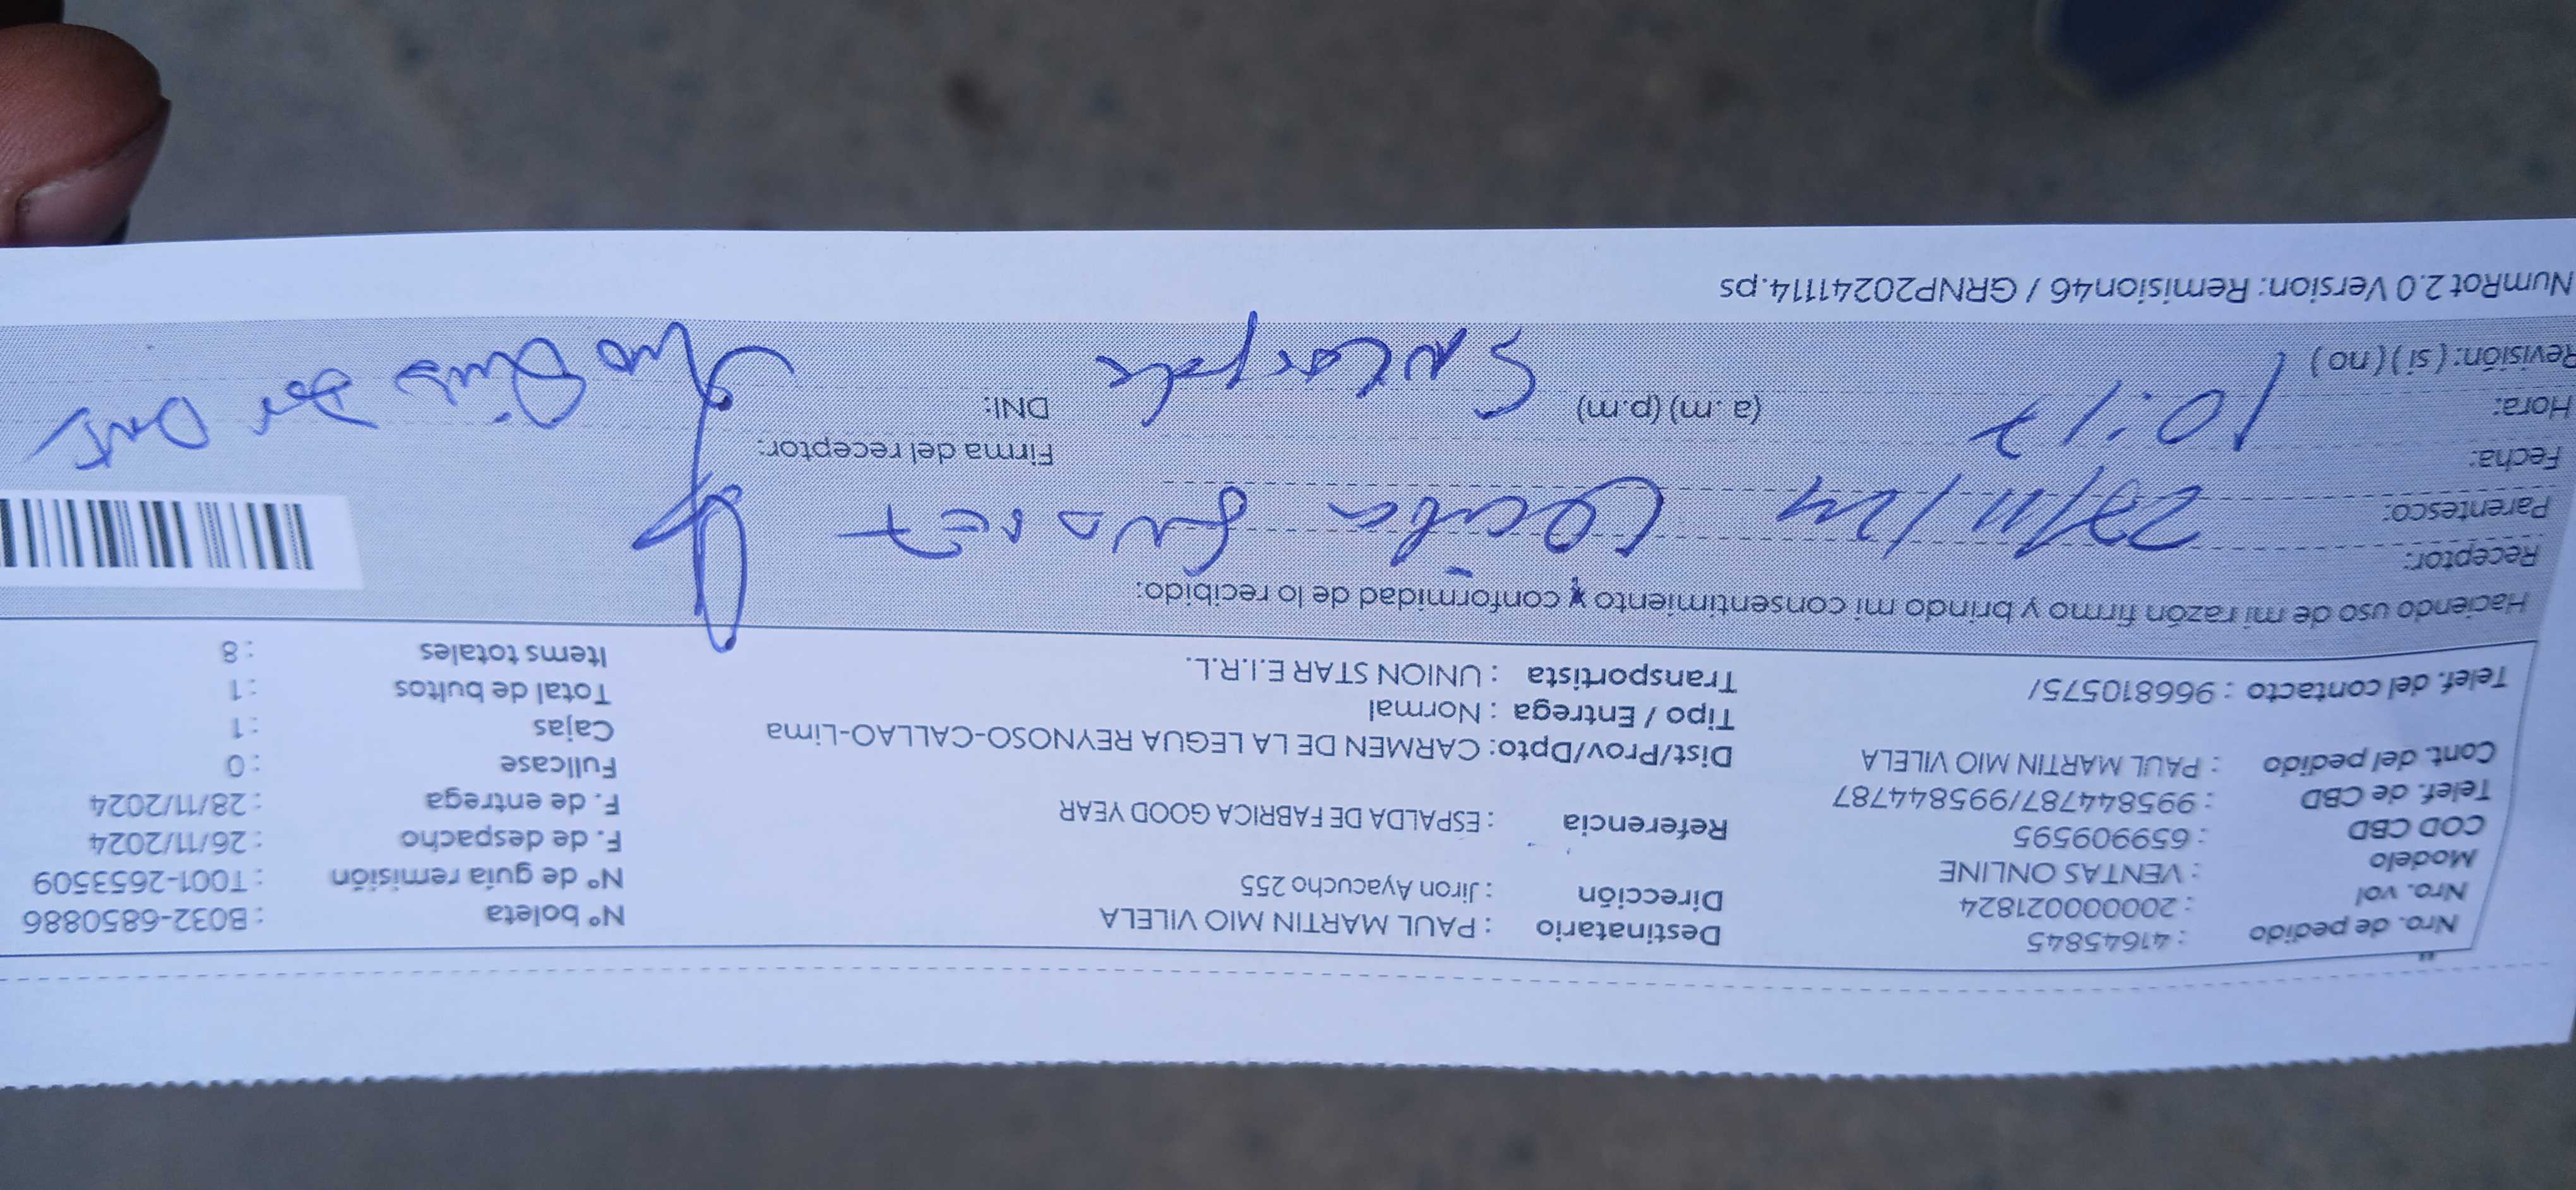 Nro. de pedido : 41645845
Nro. vol : 200000021824
Modelo : VENTAS ONLINE
COD CBD : 659909595
Telef. de CBD : 995844787/995844787
Cont. del pedido : PAUL MARTIN MIO VILELA
Telef. del contacto : 966810575/
Destinatario : PAUL MARTIN MIO VILELA
Dirección : Jiron Ayacucho 255
Referencia : ESPALDA DE FABRICA GOOD YEAR
Dist/Prov/Dpto: CARMEN DE LA LEGUA REYNOSO-CALLAO-Lima
Tipo / Entrega : Normal
Transportista : UNION STAR E.I.R.L.
N° boleta : B032-6850886
N° de guía remisión : T001-2653509
F. de despacho : 26/11/2024
F. de entrega : 28/11/2024
Fullcase : 0
Cajas : 1
Total de bultos : 1
Items totales : 8
Haciendo uso de mi razón firmo y brindo mi consentimiento y conformidad de lo recibido:
Receptor:
Parentesco: 27/11/24
Fecha:
Hora: 10:17 (a.m) (p.m)
Revisión: ( si ) ( no )
Firma del receptor:
DNI:
no Quiso Dar
NumRot 2.0 Version: Remision46 / GRNP20241114.ps